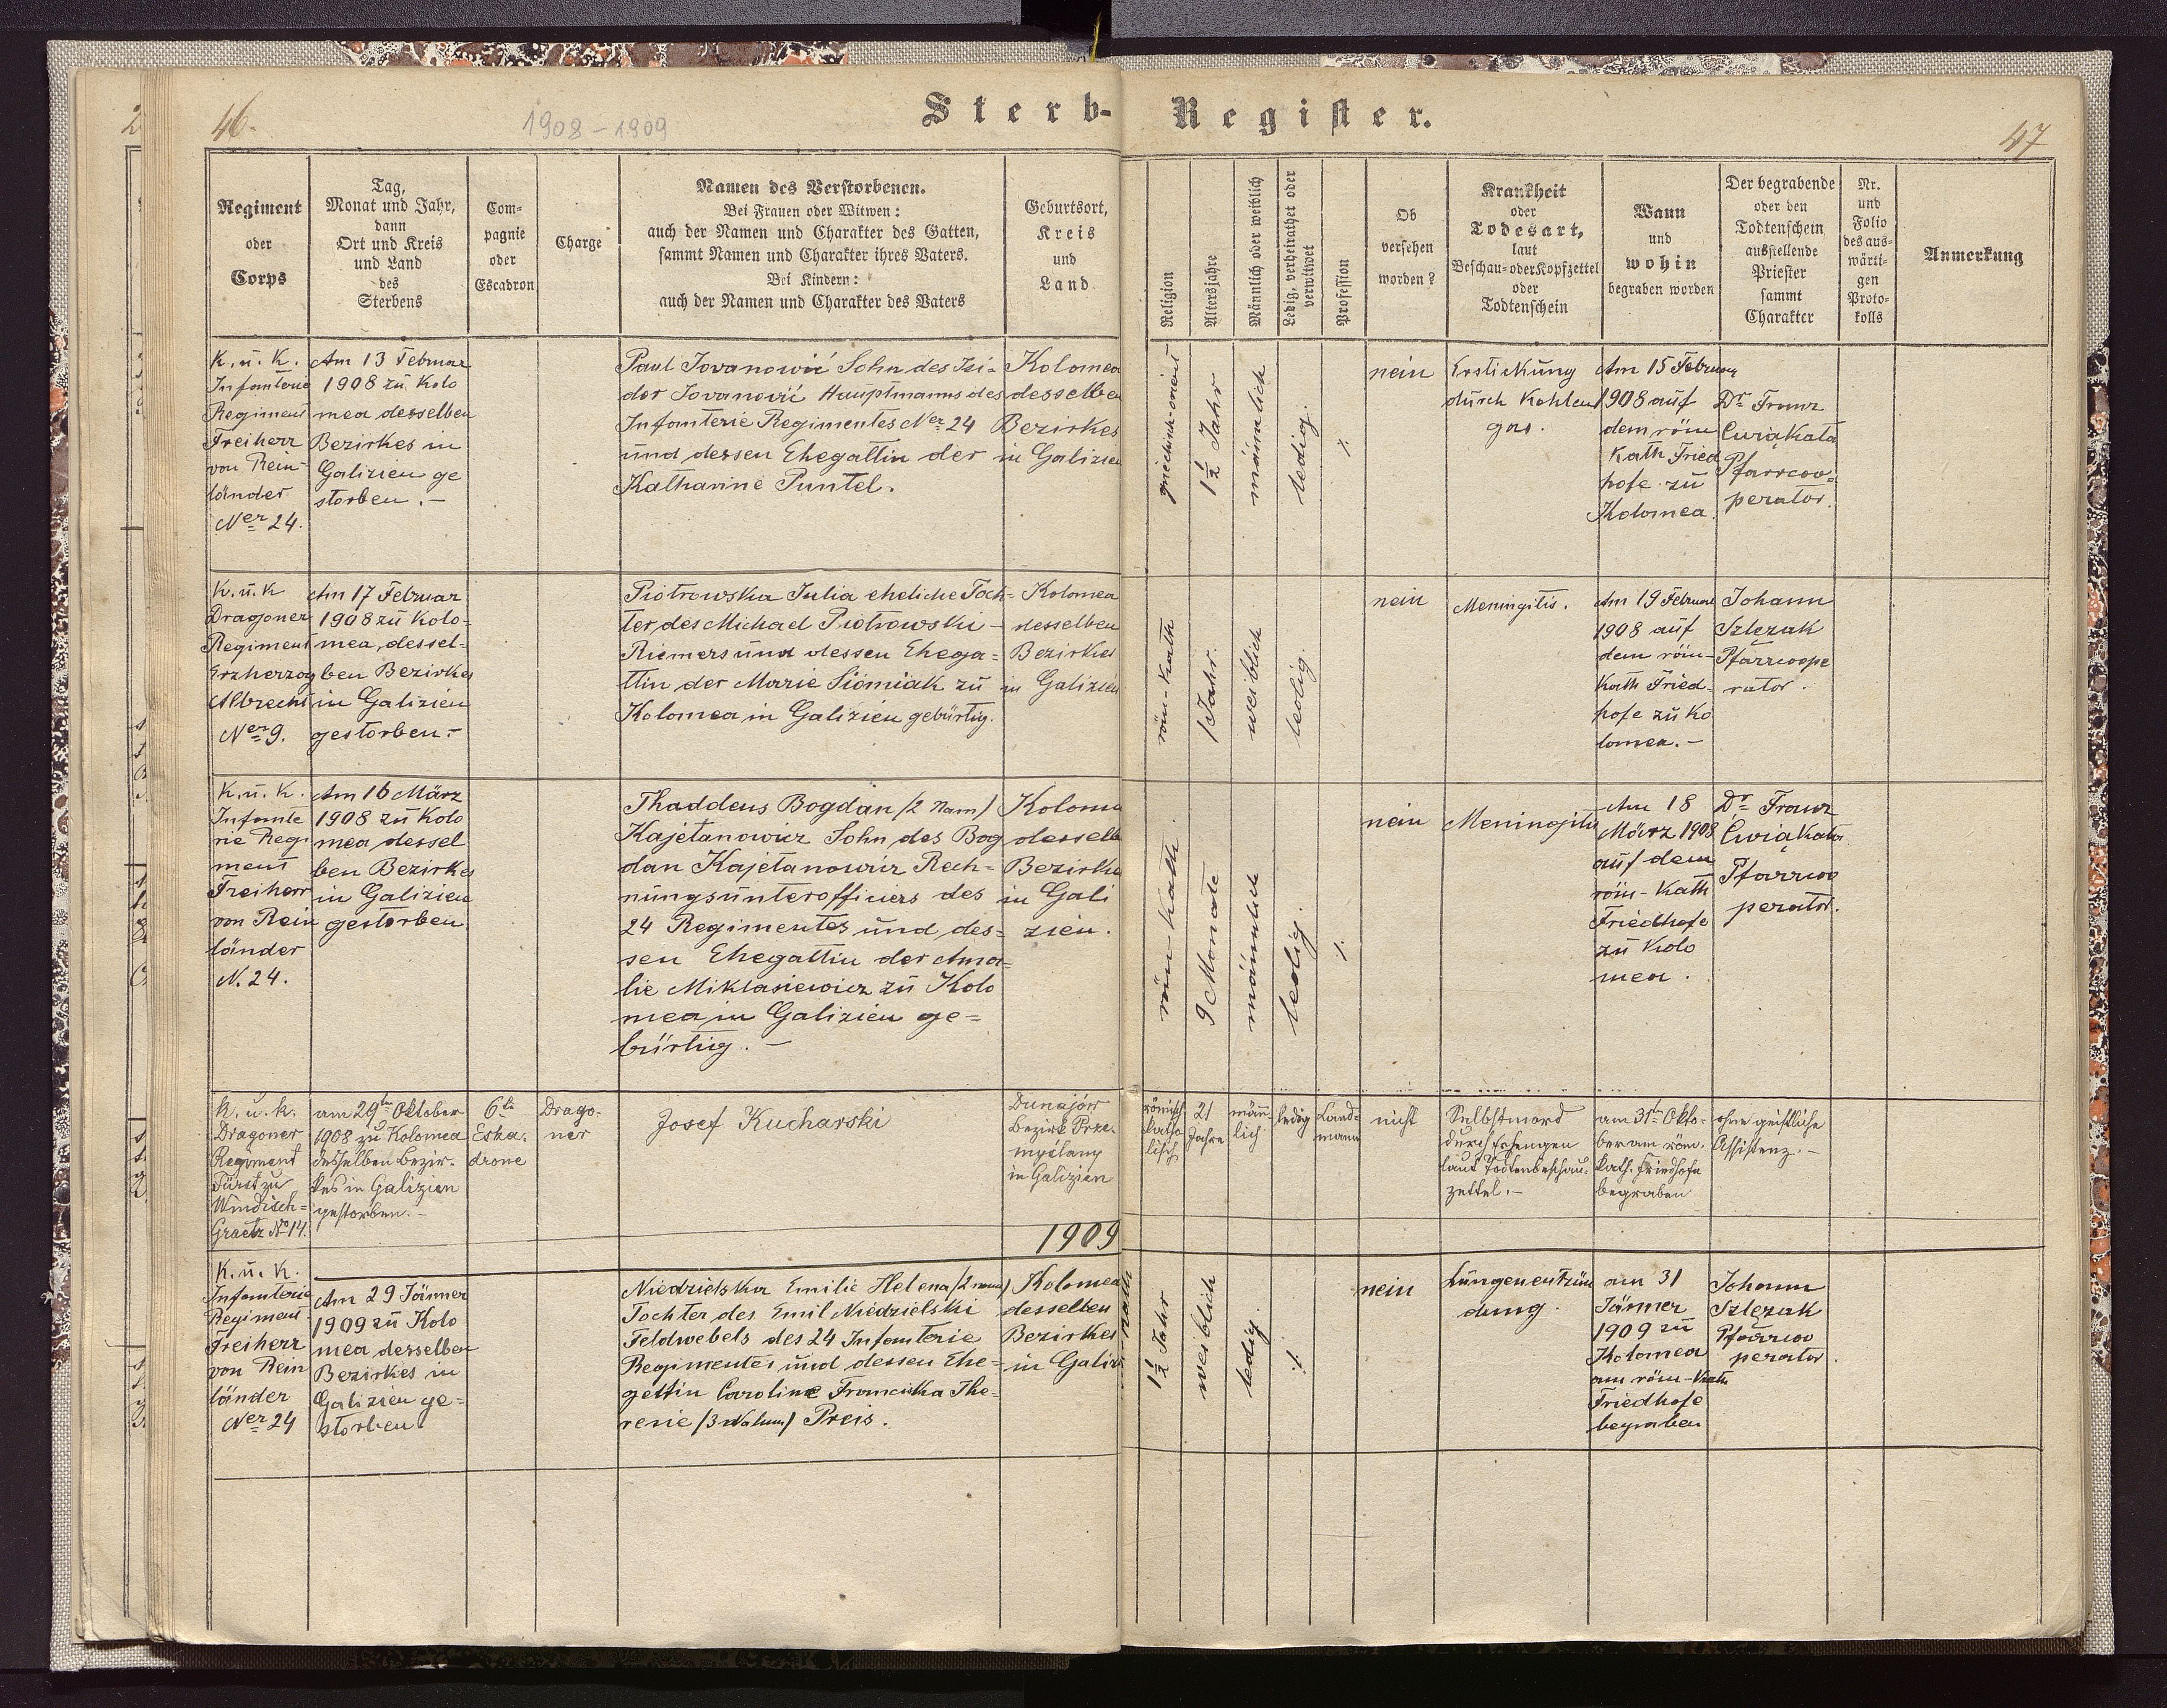 46.
1908 – 1909
Sterb-Register.
47
Regiment
oder
Corps
Tag,
Monat und Jahr,
dann
Ort und Kreis
und Land
des
Sterbens
Com-
pagnie
oder
Escadron
Charge
Namen des Verstorbenen.
Bei Frauen oder Witwen:
auch der Namen und Charakter des Gatten,
sammt Namen und Charakter ihres Vaters.
Bei Kindern:
auch der Namen und Charakter des Vaters
Geburtsort,
Kreis
und
Land
Religion
Altersjahre
Männlich oder weiblich
Ledig, verheirathet oder
verwitwet
Profession
Ob
versehen
worden?
Krankheit
oder
Todesart,
laut
Beschau- oder Kopfzettel
oder
Todtenschein
Wann
und
wohin
begraben worden
Der begrabende
oder den
Todtenschein
ausstellende
Priester
sammt
Charakter
Nr.
und
Folio
des aus-
wärti-
gen
Proto-
kolls
Anmerkung
K. u. K.
Infanterie
Regiment
Freiherr
von Rein-
länder
Ner 24.
Am 13 Februar
1908 zu Kolo
mea desselben
Bezirkes in
Galizien ge
storben. –
Paul Jovanowić Sohn des Isi-
dor Jovanović Hauptmanns des
Infanterie Regimentes Ner 24
und dessen Ehegattin der
Katharine Puntel.
Kolomea
desselben
Bezirkes
in Galizien
griechisch-orient
1½ Jahr
männlich
ledig.
%
nein
Erstickung
durch Kohlen
gas.
Am 15 Februar
1908 auf
dem röm
Kath Fried
hofe zu
Kolomea.
Dr Franz
Ćwiąkała
Pfarrcoo-
perator.
K. u. K
Dragoner
Regiment
Erzherzog
Albrecht
Ner 9.
Am 17 Februar
1908 zu Kolo-
mea, dessel-
ben Bezirkes
in Galizien
gestorben. –
Piotrowska Julia eheliche Toch-
ter des Michael Piotrowski –
Riemers und dessen Ehega-
ttin der Marie Siomiak zu
Kolomea in Galizien gebürtig.
Kolomea
desselben
Bezirkes
in Galizien
röm-Kath
1 Jahr.
weiblich
ledig.
nein
Meningitis.
Am 19 Februar
1908 auf
dem röm-
Kath Fried-
hofe zu Ko
lomea. –
Johann
Szlęzak
Pfarrcoope
rator.
K. u. K.
Infante
rie Regi
ment
Freiherr
von Rein
länder
N. 24.
Am 16 März
1908 zu Kolo
mea dessel
ben Bezirkes
in Galizien
gestorben
Thaddeus Bogdan /2 Nam/
Kajetanowicz Sohn des Bog
dan Kajetanowicz Rech-
nungsunterofficiers des
24 Regimentes und des-
sen Ehegattin der Ama-
lie Miklasiewicz zu Kolo
mea in Galizien ge-
bürtig. –
Kolomea
desselb
Bezirkes
in Gali
zien.
röm-Kath.
9 Monate
männlich
ledig.
%
nein
Meningitis
Am 18
März 1908
auf dem
röm-Kath
Friedhofe
zu Kolo
mea.
Dr Franz
Ćwiąkała
Pfarrcoo
perator.
K. u. k.
Dragoner
Regiment
Fürst zu
Windisch-
Graetz No 14.
am 29ten Oktober
1908 zu Kolomea
desselben Bezir-
kes in Galizien
gestorben. –
6te
Eska-
drone
Drago-
ner
Josef Kucharski
Dunajów
Bezirk Prze-
myślany
in Galizien
römisch
katho
lisch
21
Jahre
männ
lich
ledig
Land-
mann
nicht
Selbstmord
durch Erhengen
laut Todtenbeschau-
zettel. –
am 31ten Okto-
ber am röm.
kath. Friedhofe
begraben
ohne geistliche
Assistenz. –
1909
K. u. K.
Infanterie
Regiment
Freiherr
von Rein
länder
Ner 24
Am 29 Jänner
1909 zu Kolo
mea desselben
Bezirkes in
Galizien ge-
storben
Niedzielska Emilie Helena /2 nam/
Tochter des Emil Niedzielski
Feldwebels des 24 Infanterie
Regimentes und dessen Ehe-
gattin Caroline Franciska The-
resie /3 Nahm/ Preis.
Kolomea
desselben
Bezirkes
in Galiz
1½ Jahr
weiblich
ledig.
%
nein
Lungenentzün
dung.
am 31
Jänner
1909 zu
Kolomea
am röm-Kath
Friedhofe
begraben
Johann
Szlęzak
Pfarrcoo
perator.